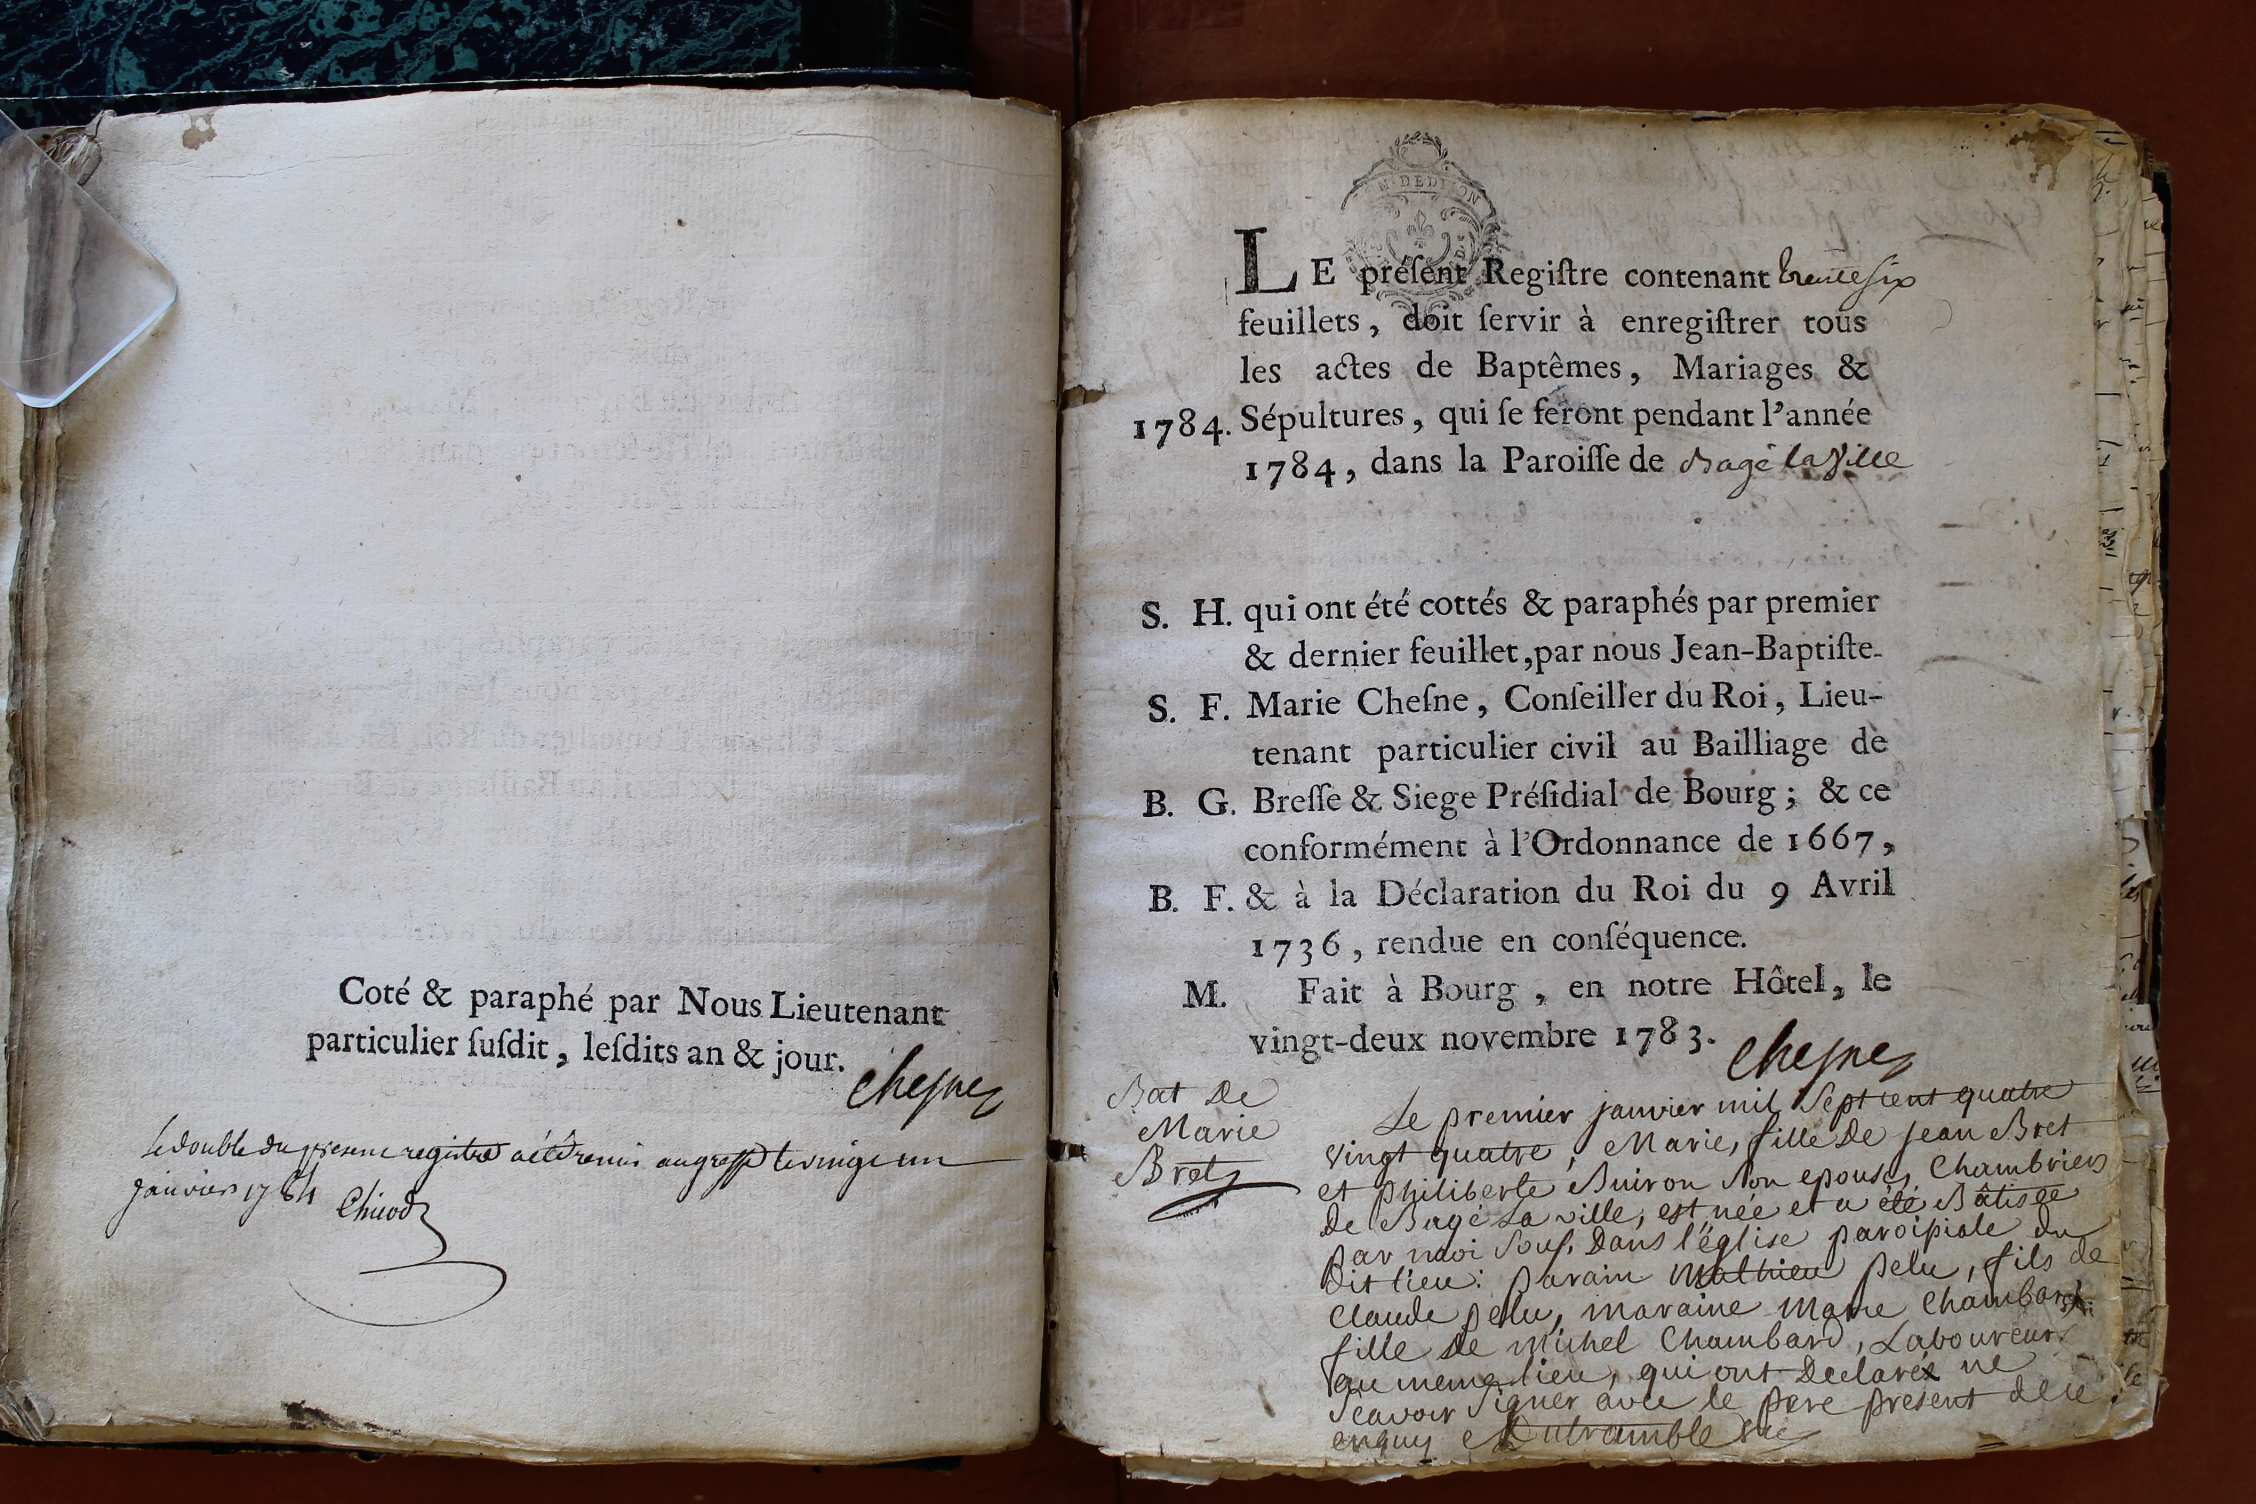 Coté & paraphé par Nous Lieutenant
particulier ſuſdit, leſdits an & jour.
Cheſne
Le double du present registre a été remis au greffe le vingt un
janvier 1784
M. DE DIJON
LE préſent Regiſtre contenant trente six
feuillets, doit ſervir à enregiſtrer tous
les actes de Baptêmes, Mariages &
1784. Sépultures, qui ſe feront pendant l'année
1784, dans la Paroiſſe de Bagé la Ville
S. H. qui ont été cottés & paraphés par premier
& dernier feuillet, par nous Jean-Baptiſte-
S. F. Marie Cheſne, Conſeiller du Roi, Lieu-
tenant particulier civil au Bailliage de
B. G. Breſſe & Siege Préſidial de Bourg; & ce
conformément à l'Ordonnance de 1667,
B. F. & à la Déclaration du Roi du 9 Avril
1736, rendue en conſéquence.
M. Fait à Bourg, en notre Hôtel, le
vingt-deux novembre 1783.
Cheſne
Bat De
Marie
Bret
Le premier janvier mil Sept cent quatre
vingt quatre, Marie, fille De jean Bret
et philiberte Buiron Son epouse, Chambriers
de Bagé La ville, est née et a été Bâtisée
par moi Souſ. Dans l'église paroissiale du
Dit lieu: parain Mathieu pelu, fils de
Claude pelu, maraine Marie Chambard,
fille de Michel Chambard, Laboureurs
au meme lieu, qui ont Declaré ne
Scavoir Signer avec le pere present de ce
enquy Dutramble